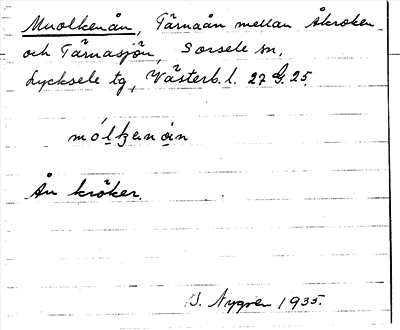 Muolkenån, Tärnaån mellan Åkroken
och Tärnasjön, Sorsele sn.
Lycksele tg, Västerb. l. 27 G. 25.
Ån kröker.
S. Nygren 1935.